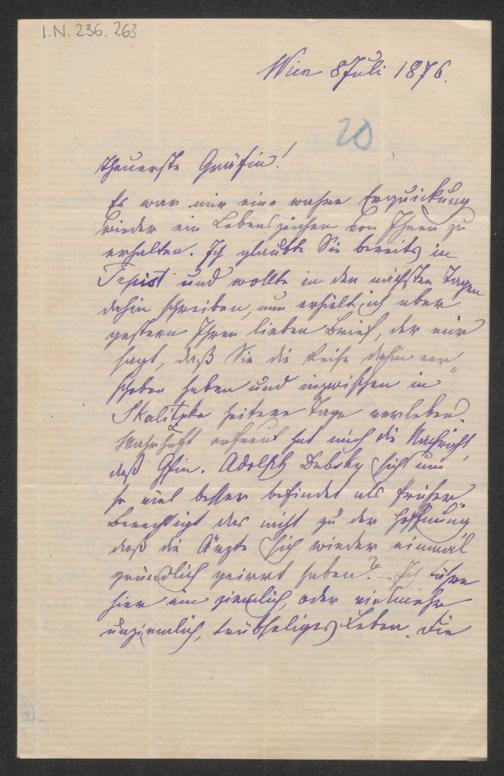 I.N. 236.263
Wien 8 Juli 1876.
20
theuerste Gräfin!
Es war mir eine wahre Erquickung
wieder ein Lebenszeichen von Ihnen zu
erhalten. Ich glaubte Sie bereits in
und wollte in den nächsten Tagen
dahin schreiben, nun erhielt ich aber
gestern Ihren lieben Brief, der mir
sagt, daß Sie die Reise dahin ver
schoben haben und inzwischen in
Skalitzka heitere Tage verleben.
Wahrhaft erfreut hat mich die Nachricht,
daß Gfin. Adolph Dubsky sich um
so viel besser befindet als früher
berechtigt das nicht zu der Hoffnung
daß die Ärzte sich wieder einmal
gründlich geirrt haben? – Ich führe
hier ein ziemlich, oder vielmehr
unziemlich, trübseliges Leben. Die